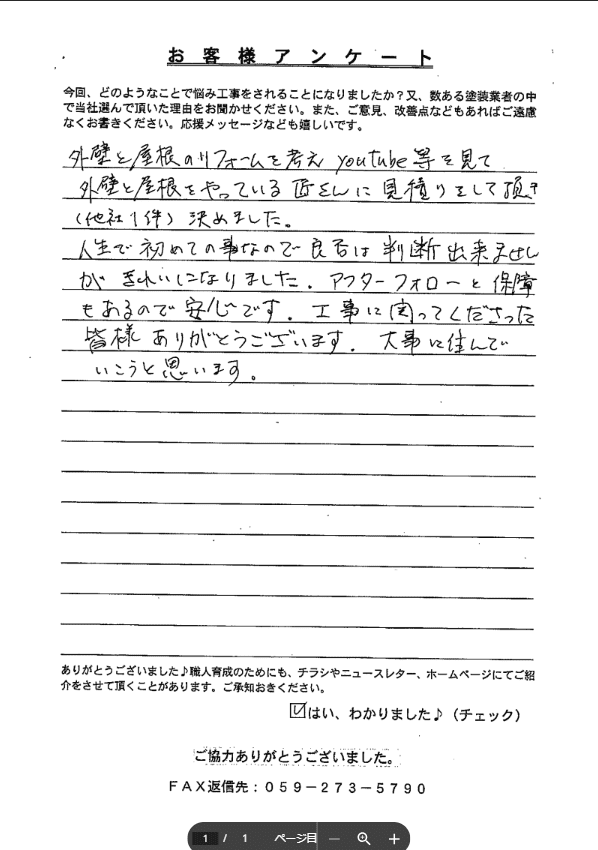 お客様アンケート
今回、どのようなことで悩み工事をされることになりましたか？又、数ある塗装業者の中
で当社選んで頂いた理由をお聞かせください。また、ご意見、改善点などもあればご遠慮
なくお書きください。応援メッセージなども嬉しいです。
外壁と屋根のリフォームを考え youtube等を見て
外壁と屋根をやっている匠さんに見積りをして頂き
（他社1件）決めました。
人生で初めての事なので良否は判断出来ません
が きれいになりました。アフターフォローと保障
もあるので安心です。工事に関ってくださった
皆様ありがとうございます。大事に住んで
いこうと思います。
ありがとうございました♪職人育成のためにも、チラシやニュースレター、ホームページにてご紹
介をさせて頂くことがあります。ご承知おきください。
☑はい、わかりました♪（チェック）
ご協力ありがとうございました。
ＦＡＸ返信先：０５９－２７３－５７９０
1 / 1 ページ目